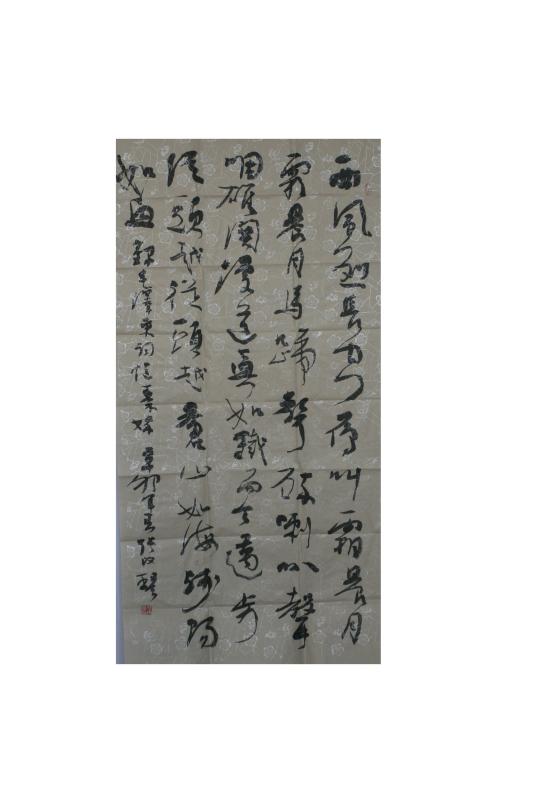 西風烈長空雁叫霜晨月
霜晨月馬蹄聲碎喇叭聲
咽雄關漫道真如鐵而今邁步
從頭越從頭越蒼山如海殘陽
如血 錄毛澤東詞憶秦娥 張改琴